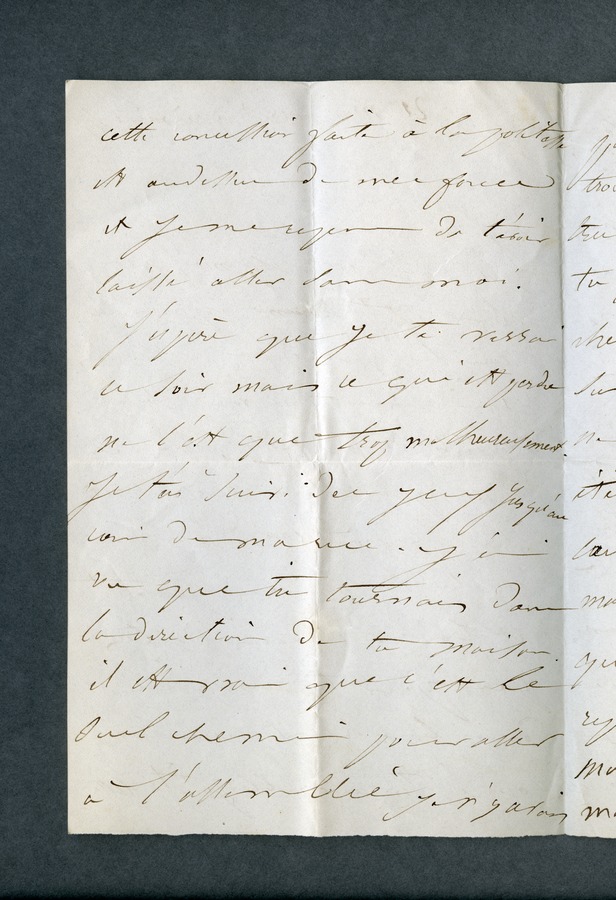 cette concession faite à la politesse
est au dessus de mes forces
et je me repens de t'avoir
laissé aller sans moi.
J'espère que je te verrai
ce soir mais ce qui est perdu
ne l'est que trop malheureusement.
Je t'ai suivi des yeux jusqu'au
coin de ma rue. j'ai
vu que tu tournais dans
la direction de ta maison
il est vrai que c'est le
seul chemin pour aller
à l'assemblée